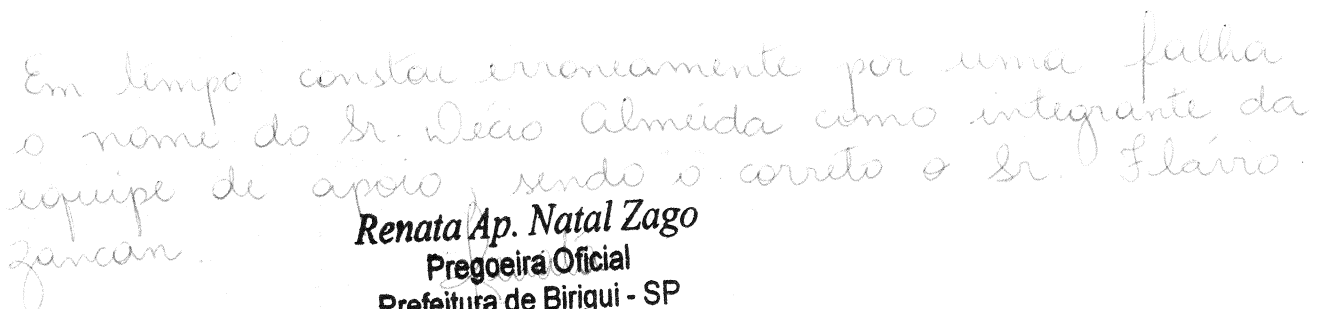 Em tempo: consta erroneamente por uma falha
o nome do Sr. Décio Almeida como integrante da
equipe de apoio, sendo o correto o Sr. Flávio
Zancan.
Renata Ap. Natal Zago
Pregoeira Oficial
Prefeitura de Birigui - SP